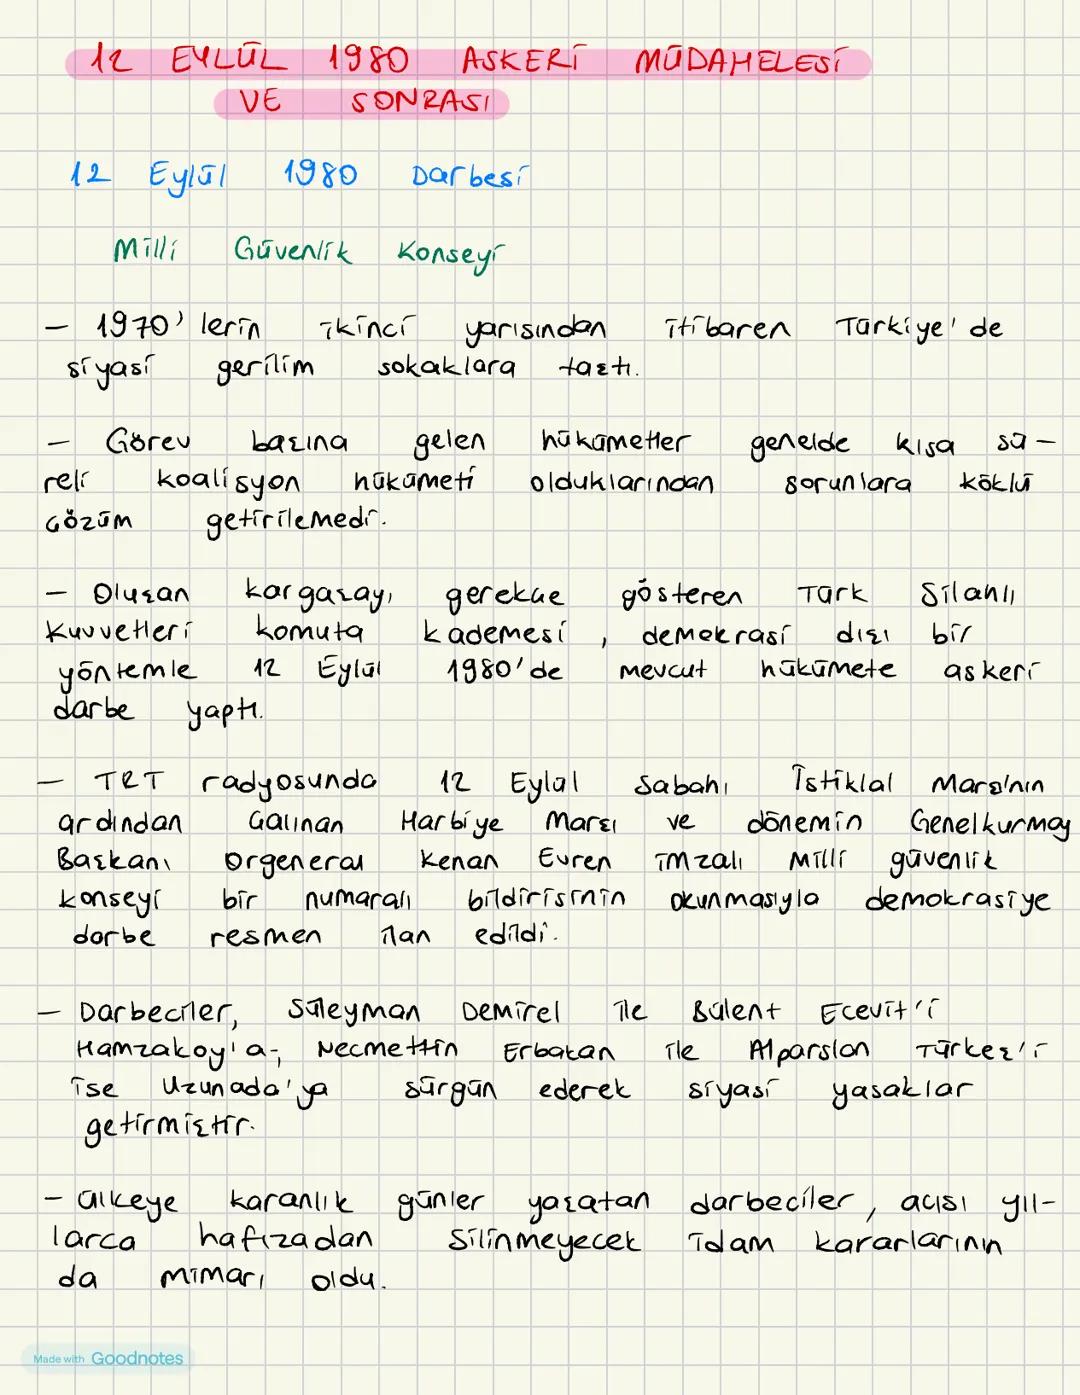 12 EYLÜL 1980 ASKERİ MÜDAHELESİ
VE SONRASI
12 Eylül 1980 Darbesi
Milli Güvenlik Konseyi
- 1970'lerin ikinci yarısından itibaren Türkiye'de
siyasi gerilim sokaklara taştı.
- Görev başına gelen hükümetler genelde kısa sü-
reli koalisyon hükümeti olduklarından sorunlara köklü
çözüm getirilemedi.
- Oluşan kargaşayı gerekçe gösteren Türk Silahlı
Kuvvetleri komuta kademesi, demokrasi dışı bir
yöntemle 12 Eylül 1980'de mevcut hükümete askeri
darbe yaptı.
- TRT radyosunda 12 Eylül Sabahı İstiklal Marşı'nın
ardından çalınan Harbiye Marşı ve dönemin Genelkurmay
Başkanı Orgeneral Kenan Evren imzalı Milli güvenlik
konseyi bir numaralı bildirisinin okunmasıyla demokrasiye
darbe resmen ilan edildi.
- Darbeciler, Süleyman Demirel ile Bülent Ecevit'i
Hamzakoy'a, Necmettin Erbakan ile Alparslan Türkeş'i
ise Uzunada'ya sürgün ederek siyasi yasaklar
getirmiştir.
- ülkeye karanlık günler yaşatan darbeciler, acısı yıl-
larca hafızadan silinmeyecek idam kararlarının
da mimarı oldu.
Made with Goodnotes